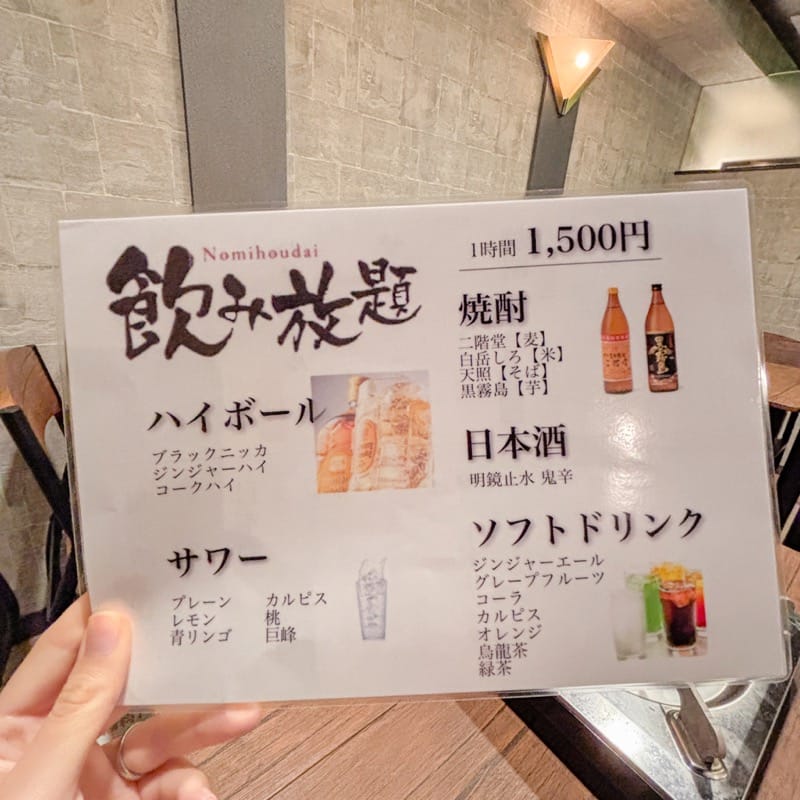 飲み放題
Nomihoudai
1時間 1,500円
ハイボール
ブラックニッカ
ジンジャーハイ
コークハイ
サワー
プレーン カルピス
レモン 桃
青リンゴ 巨峰
焼酎
二階堂【麦】
白岳しろ【米】
天照【そば】
黒霧島【芋】
日本酒
明鏡止水 鬼辛
ソフトドリンク
ジンジャーエール
グレープフルーツ
コーラ
カルピス
オレンジ
烏龍茶
緑茶